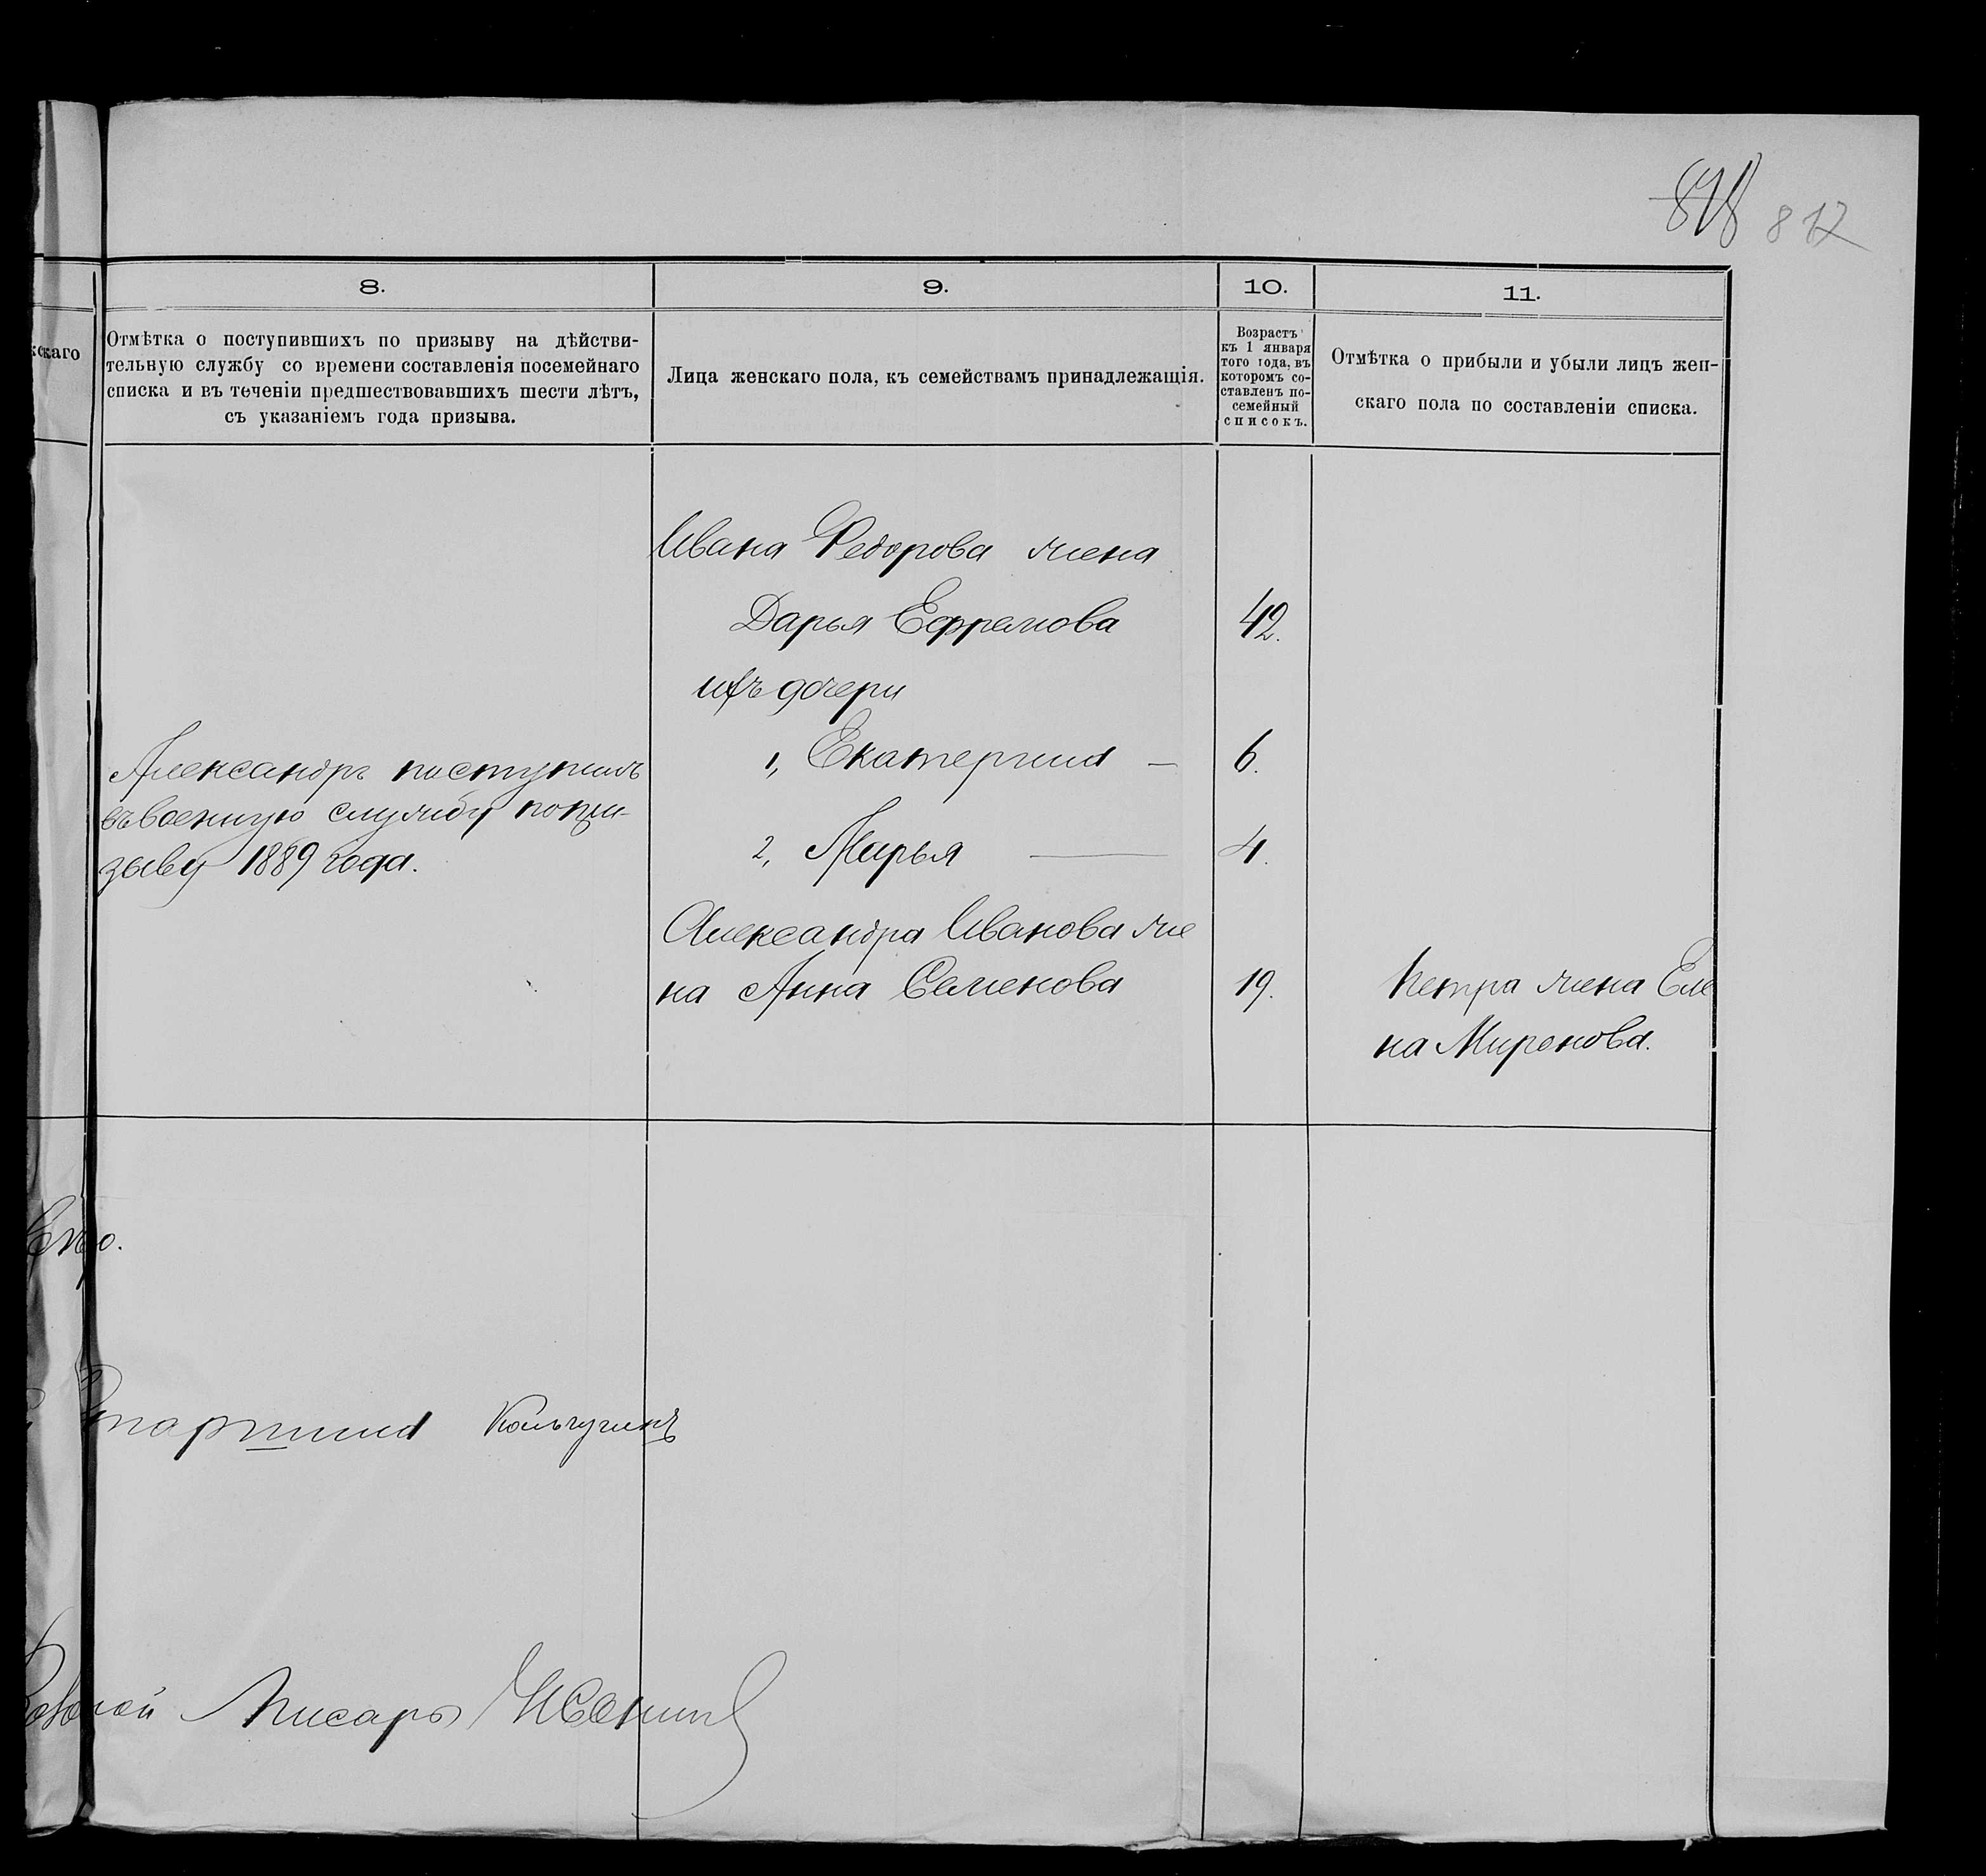 818 812
8.
9.
10.
11.
скаго
Отмѣтка о поступившихъ по призыву на дѣйстви-
тельную службу со времени составленія посемейнаго
списка и въ теченіи предшествовавшихъ шести лѣтъ,
съ указаніемъ года призыва.
Лица женскаго пола, къ семействамъ принадлежащія.
Возрастъ
къ 1 января
того года, въ
которомъ со-
ставленъ по-
семейный
списокъ.
Отмѣтка о прибыли и убыли лицъ жен-
скаго пола по составленіи списка.
Александръ поступилъ
въ военную службу по при-
зыву 1889 года.
Ивана Федорова жена
Дарья Ефремова 42.
ихъ дочери
1, Екатерина — 6.
2, Марья — 4.
Александра Иванова же
на Анна Семенова 19.
Петра жена Еле
на Миронова.
Старшина Кольчугинъ
Писарь